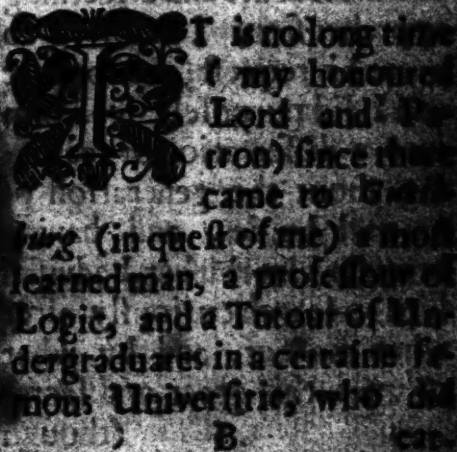 IT is no long time
( my honoured
Lord and Pa-
tron) ſince there
came to
burg (in queſt of me) a moſt
learned man, a profeſſour of
Logic, and a Tutour of Un-
dergraduates in a certaine fa-
mous Univerſitie, who did
B ear-